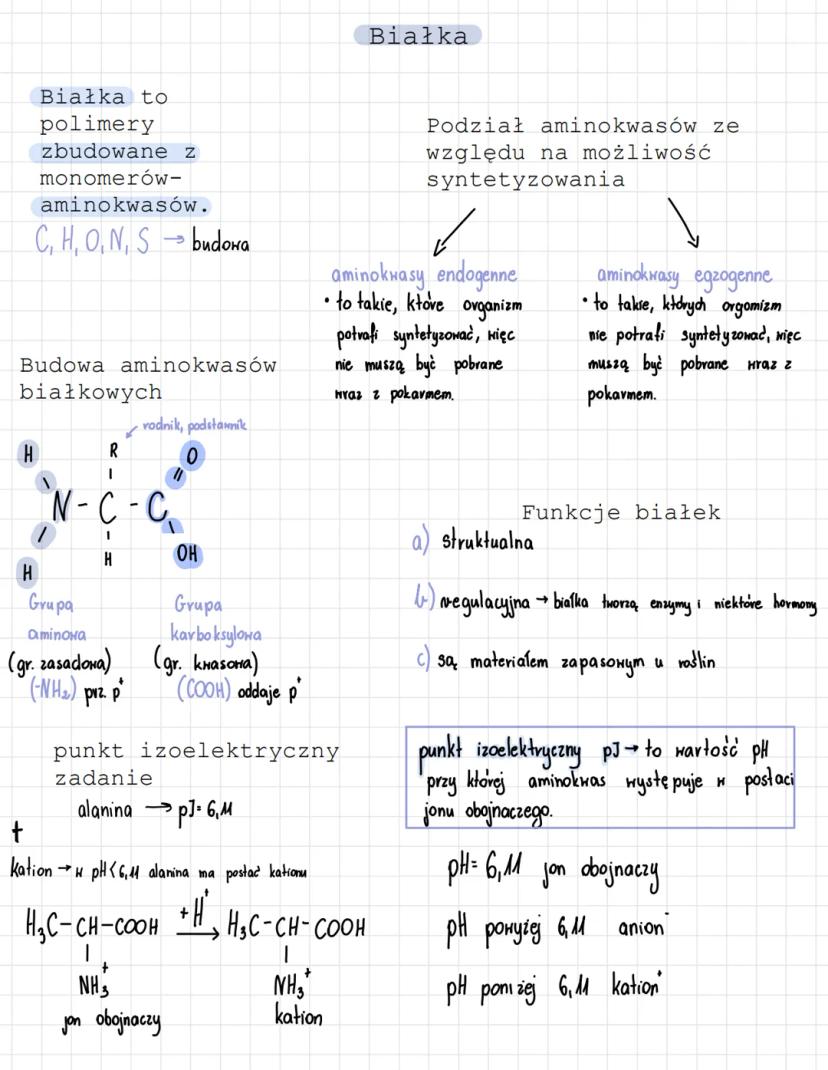 Białka
Białka to
polimery
zbudowane z
monomerów-
aminokwasów.
C, H, O, N, S → budowa
Podział aminokwasów ze
względu na możliwość
syntetyzowania
aminokwasy endogenne
• to takie, które organizm
potrafi syntetyzować, więc
nie muszą być pobrane
wraz z pokarmem.
aminokwasy egzogenne
• to takie, których orgomizm
nie potrafi syntetyzować, więc
muszą być pobrane wraz z
pokarmem.
Budowa aminokwasów
białkowych
rodnik, podstawnik
H R O
N - C - C
H H OH
Grupa
aminowa
(gr. zasadowa)
(-NH₂) prz. p⁺
Grupa
karboksylowa
(gr. kwasowa)
(COOH) oddaje p⁺
Funkcje białek
a) struktualna
b) regulacyjna → białka tworzą enzymy i niektóre hormony
c) są materiałem zapasowym u roślin
punkt izoelektryczny pJ → to wartość pH
przy której aminokwas występuje w postaci
jonu obojnaczego.
punkt izoelektryczny
zadanie
alanina → pJ= 6,11
t
kation → w pH < 6,11 alanina ma postać kationu
H₃C-CH-COOH +H⁺ → H₃C-CH-COOH
NH₃⁺ NH₃⁺
jon obojnaczy kation
pH= 6,11 jon obojnaczy
pH powyżej 6,11 anion⁻
pH poniżej 6,11 kation⁺